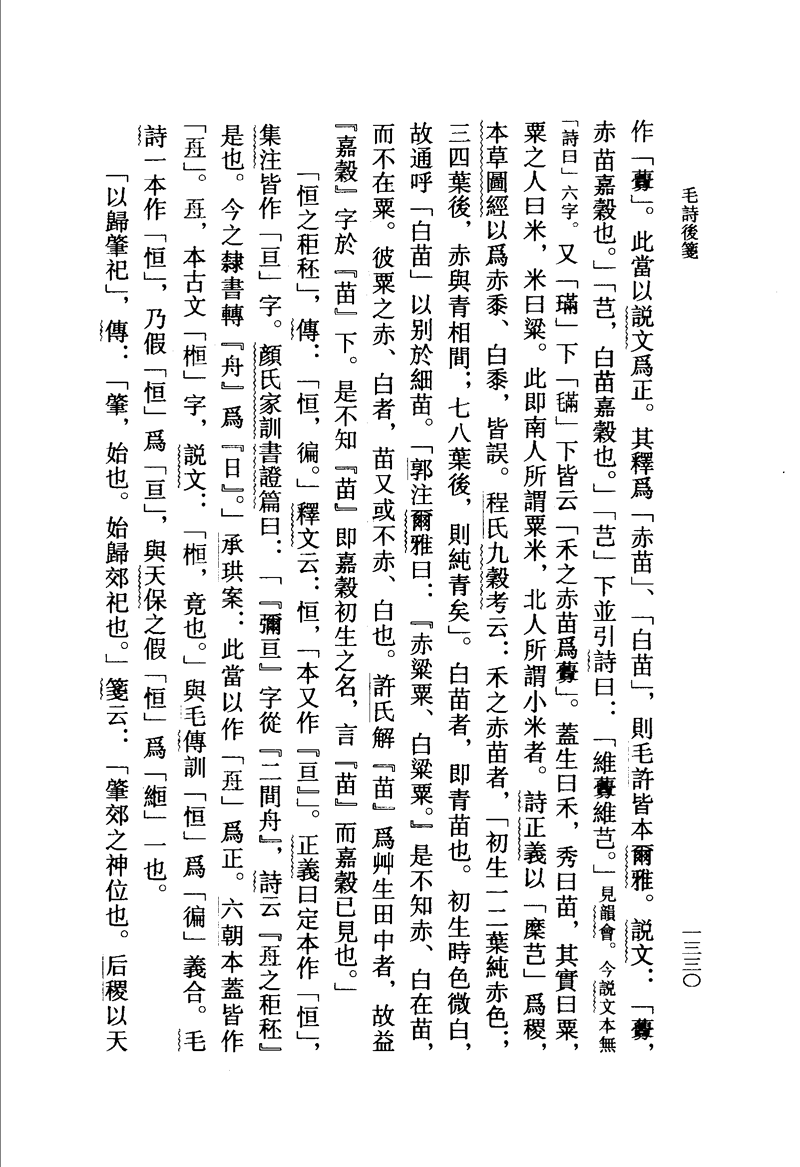 毛詩後箋
一三三〇
作「虋」。此當以説文爲正。其釋爲「赤苗」、「白苗」，則毛許皆本爾雅。説文：「虋，
赤苗嘉穀也。」「芑，白苗嘉穀也。」「芑」下並引詩曰：「維虋維芑。」見韻會。今説文本無
「詩曰」六字。又「璊」下「𣯩」下皆云「禾之赤苗爲虋」。蓋生曰禾，秀曰苗，其實曰粟，
粟之人曰米，米曰粱。此即南人所謂粟米，北人所謂小米者。詩正義以「穈芑」爲稷，
本草圖經以爲赤黍、白黍，皆誤。程氏九穀考云：禾之赤苗者，「初生一二葉純赤色；
三四葉後，赤與青相間；七八葉後，則純青矣」。白苗者，即青苗也。初生時色微白，
故通呼「白苗」以别於細苗。「郭注爾雅曰：『赤粱粟、白粱粟。』是不知赤、白在苗，
而不在粟。彼粟之赤、白者，苗又或不赤、白也。許氏解『苗』爲艸生田中者，故益
『嘉穀』字於『苗』下。是不知『苗』即嘉穀初生之名，言『苗』而嘉穀已見也。」
「恒之秬秠」，傳：「恒，徧。」釋文云：恒，「本又作『亘』」。正義曰定本作「恒」，
集注皆作「亘」字。顔氏家訓書證篇曰：「『彌亘』字從『二間舟』，詩云『𠄢之秬秠』
是也。今之隸書轉『舟』爲『日』。」承珙案：此當以作「𠄢」爲正。六朝本蓋皆作
「𠄢」。𠄢，本古文「𣐊」字，説文：「𣐊，竟也。」與毛傳訓「恒」爲「徧」義合。毛
詩一本作「恒」，乃假「恒」爲「亘」，與天保之假「恒」爲「縆」一也。
「以歸肇祀」，傳：「肇，始也。始歸郊祀也。」箋云：「肇郊之神位也。后稷以天